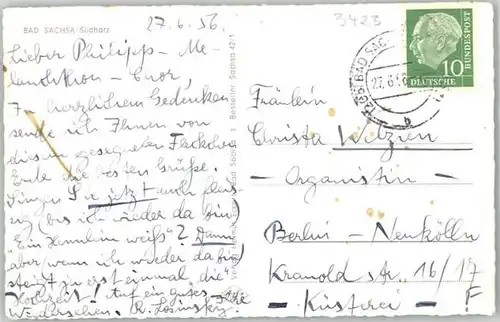 BAD SACHSA/Südharz
27.6.56
Lieber Philipp-Me-
lanchthon-Chor,
Z. herzlichem Gedenken
sende ich Ihnen von
diesem gesegneten Fleckchen
Erde die besten Grüße.
Singen Sie jetzt
(bis ich wieder da bin)
"Ein Hennlein weiß"? Dann
aber wenn ich wieder da bin
steigt zu erst einmal die
"Hochzeit". Auf ein gutes
Wiedersehen.
3423
BAD SAC
27.6.5
DEUTSCHE
BUNDESPOST
10
b
Fräulein
Christa Welzien
- Organistin -
Berlin - Neukölln
Kranold str. 16/17
- Küsterei -